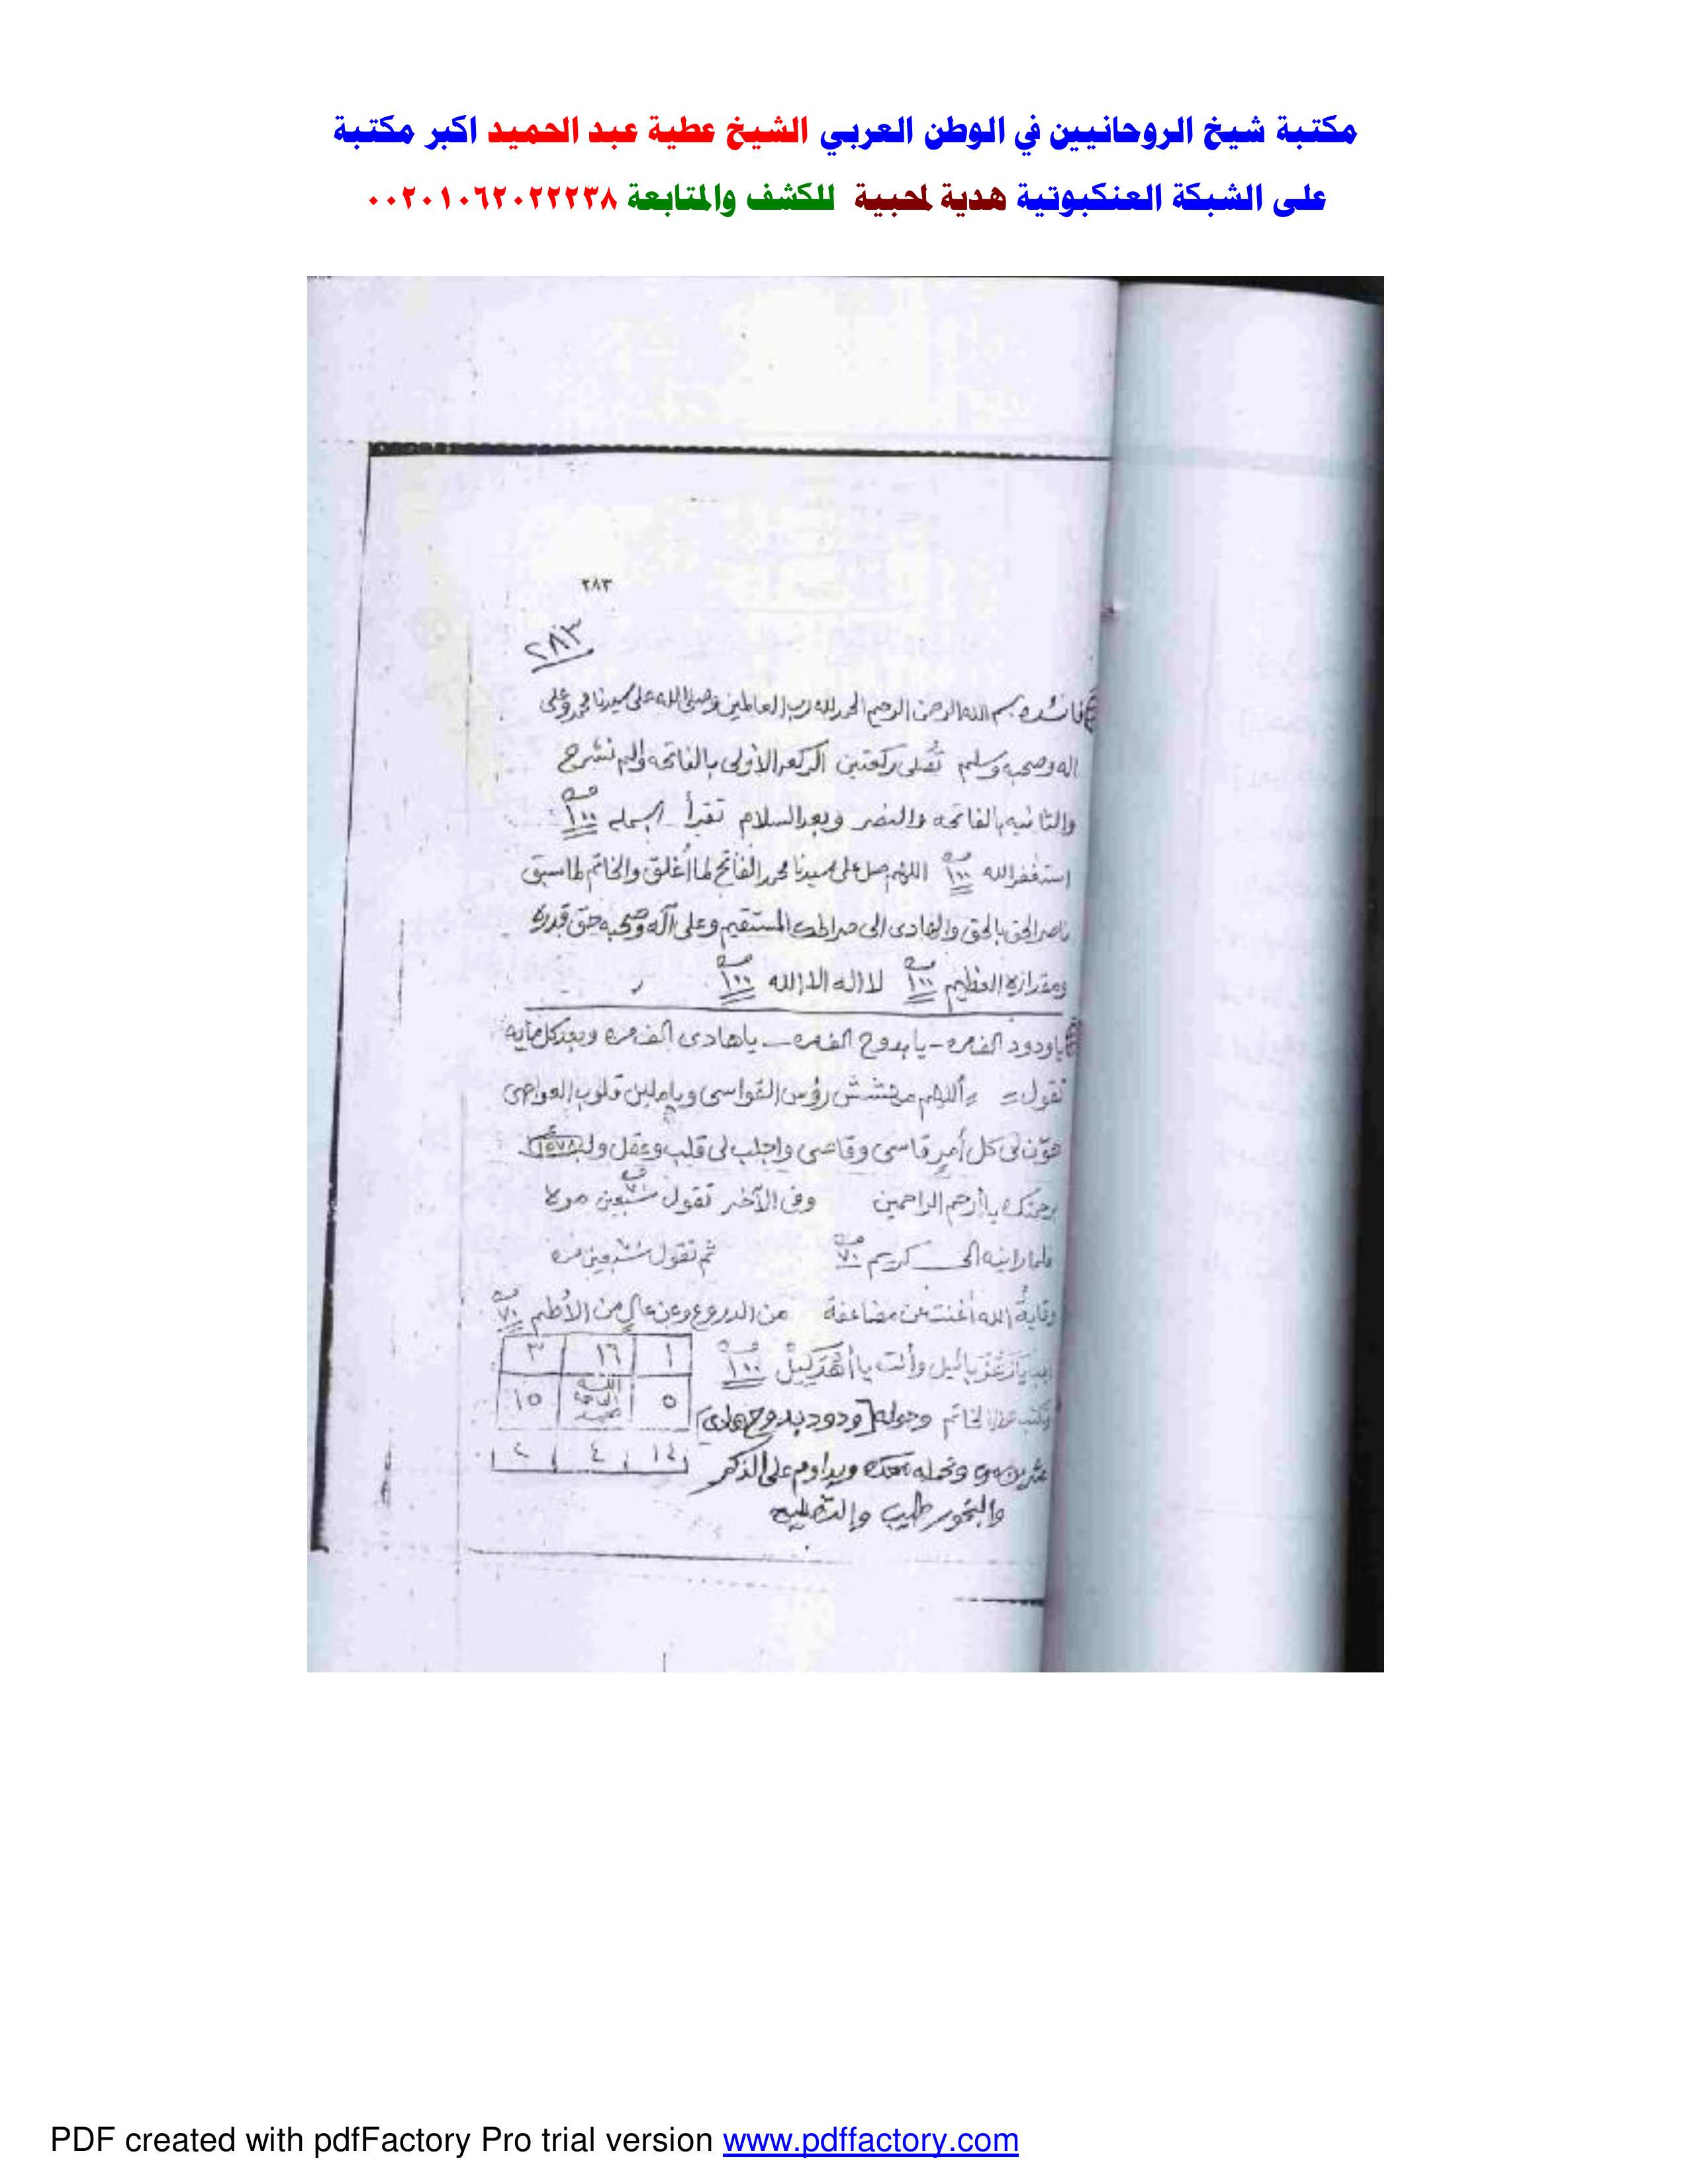 مكتبة شيخ الروحانيين في الوطن العربي الشيخ عطية عبد الحميد اكبر مكتبة
على الشبكة العنكبوتية هدية لمحبية للكشف والمتابعة ٠٠٢٠١٠٦٢٠٢٢٢٣٨
٢٨٣
٢٨٣
فائده بسم الله الرحمن الرحيم الحمد لله رب العالمين وصلى الله على سيدنا محمد وعلى
اله وصحبه وسلم تصلى ركعتين الركعه الأولى بالفاتحه والم نشرح
والثانيه بالفاتحه والنصر وبعد السلام تقرأ البسمله ١٠٠
استغفر الله ١٠٠ اللهم صل على سيدنا محمد الفاتح لما أغلق والخاتم لما سبق
ناصر الحق بالحق والهادى الى صراطك المستقيم وعلى آله وصحبه حق قدره
ومقداره العظيم ١٠٠ لا اله الا الله ١٠٠
يا ودود الف مره - يا بدوح الف مره - يا هادى الف مره وبعد كل مايه
تقول = اللهم رؤس القواسى ويا ملين قلوب العواصى
هون لى كل أمر قاسى وقاصى واجلب لى قلب وعقل ولب
برحمتك يا أرحم الراحمين وفى الآخر تقول سبعين مره
فلما راينه الى كريم ٧٠ ثم تقول سبعين مره
وقاية الله أغنت عن مضاعفة من الدروع وعن عال من الأطم ٧٠
وأنت يا ١٠٠
١ ١٦ ٣
وتكتب هذا الخاتم وحوله [ودود بدوح هادى]
٥ ١٥
عشرين مره وتحمله معك ويداوم على الذكر
١٤ ٤ ٢
والبخور طيب
PDF created with pdfFactory Pro trial version www.pdffactory.com